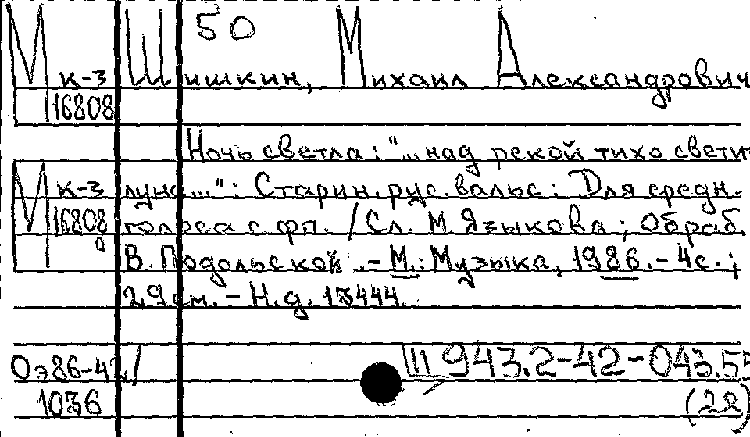 50
М к-3 Шишкин, Михаил Александрович
16808
Ночь светла: "...над рекой тихо свети
М к-3 луна...": Старин. рус. вальс: Для средн.
16808 голоса с фп. / Сл. М. Языкова; Обраб.
а В. Подольской. - М.: Музыка, 1986. - 4с.;
29 см. - Н.д. 13444.
Оэ86-42/ Ш 943.2-42-043.55
1036 (28)